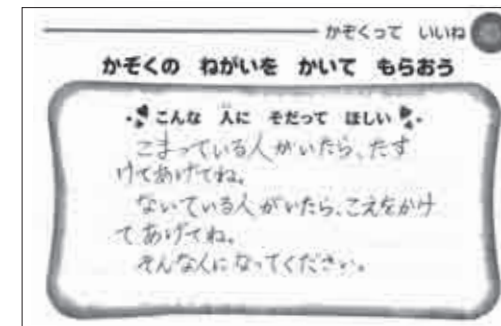 かぞくって いいね
かぞくの ねがいを かいて もらおう
こんな 人に そだって ほしい
こまっている人がいたら、たす
けてあげてね。
ないている人がいたら、こえをかけ
てあげてね。
そんな人になってください。